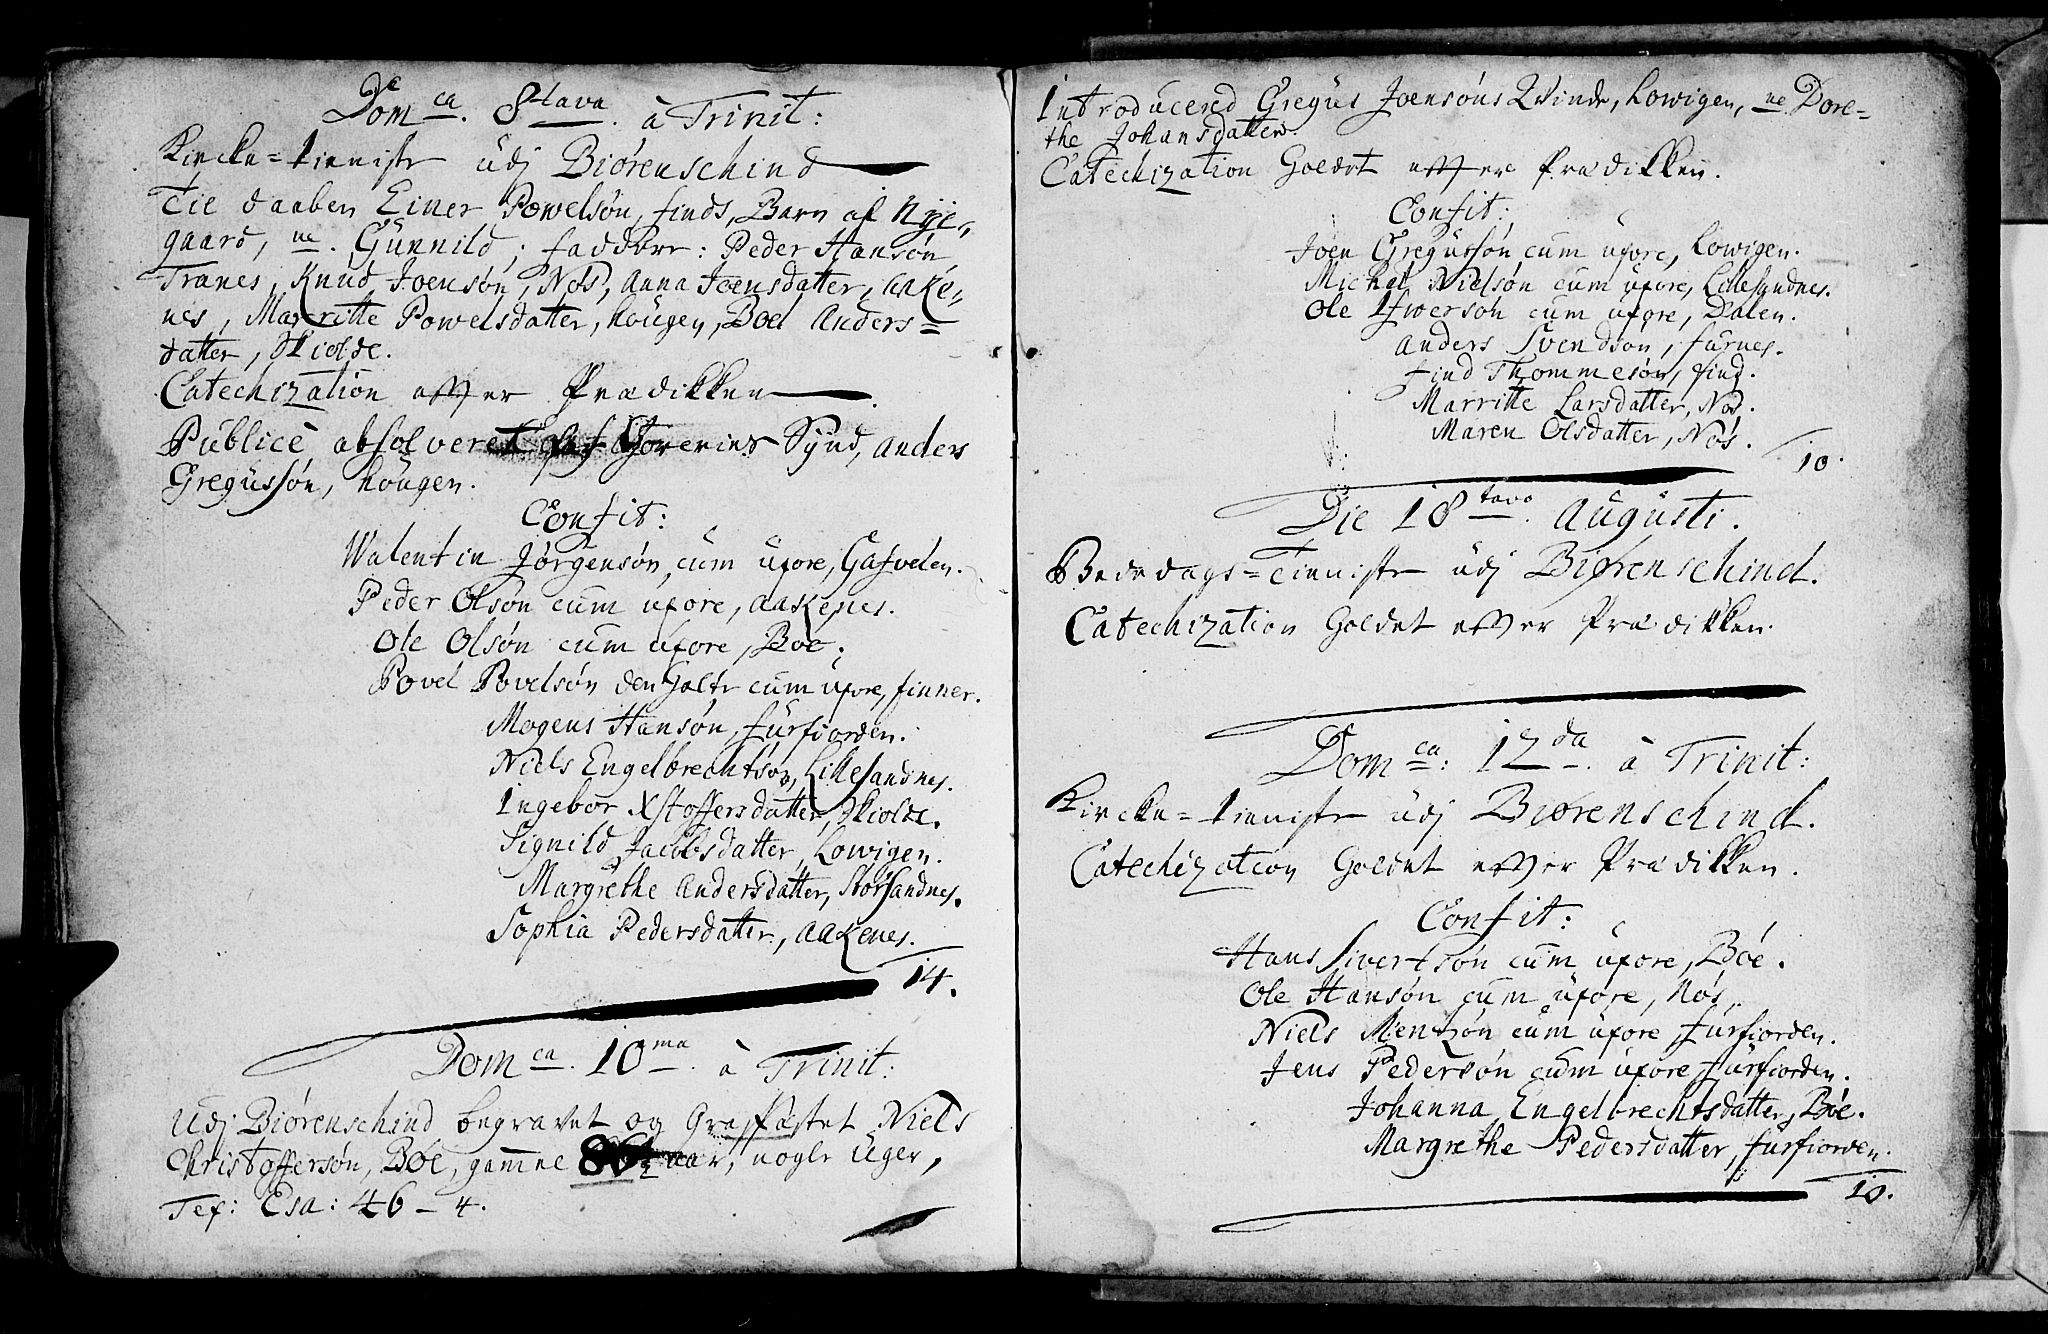 Dom ca. 8 tava. à Trinit:
Kircke-tieniste udj Biørenschind
Til daaben Einer Powelsøn, finds, Barn af Nÿe-,
gaard, ne. Gunnild; faddere: Peder Hansøn
Tranes, Knud Joensøn, Nøs, Anna Joensdatter, aake-,
nes, Marritte Powelsdatter, hougen, Boel Anders=
datter, Skiolde.
Catechization effter Prædikken
Publicè absolveret af Sÿnd, anders
Gregussøn, hougen.
Confit:
Walentin Jørgensøn, cum uxore, Gasvelen.
Peder Olsøn cum uxore, aakenes.
Ole Olsøn cum uxore, Boe.
Povel Povelsøn den Halte cum uxore, finner.
Mogens Hansøn, furfiorden.
Niels Engelbrechtsøn, Lillesandnes.
Ingebor Xstoffersdatter, Skiolde.
Signild Jacobsdatter, Lowigen.
Margrethe Andersdatter, Storsandnes.
Sophia Pedersdatter, aakenes.
14.
Dom ca. 10 ma. à Trinit:
Udj Biørenschind begravet og Graffæstet Niels
Christoffersøn, Boe, gamel 86½ aar, nogle Uger,
Tex: Esa: 46-4.
Introducered Gregus Joensøns Qvinde, Lowigen, ne Dore-
the Johansdatter.
Catechization Holdet effter Prædikken.
Confit:
Joen Gregussøn cum uxore, Lowigen.
Michel Nielsøn cum uxore, Lillesandnes.
Ole Iwersøn cum uxore, Dalen.
Anders Svendsøn, furnes.
find Thommesøn, find.
Marritte Larsdatter, Nøs.
Maren Olsdatter, Nøs.
10.
Die 18 tavo. Augusti.
Bededags-Tieniste udj Biørenschind.
Catechization Holdet effter Prædikken.
Dom ca: 12 da. à Trinit:
Kircke-tieniste udj Biørenschind.
Catechization Holdet effter Prædikken.
Confit:
Hans Sivertsøn cum uxore, Bóe.
Ole Hansøn cum uxore, Nøs,.
Niels Mentzøn cum uxore, furfiorden.
Jens Pedersøn cum uxore, furfiorden.
Johanna Engelbrechtsdatter, Bóe.
Margrethe Pedersdatter, furfiorden.
10.